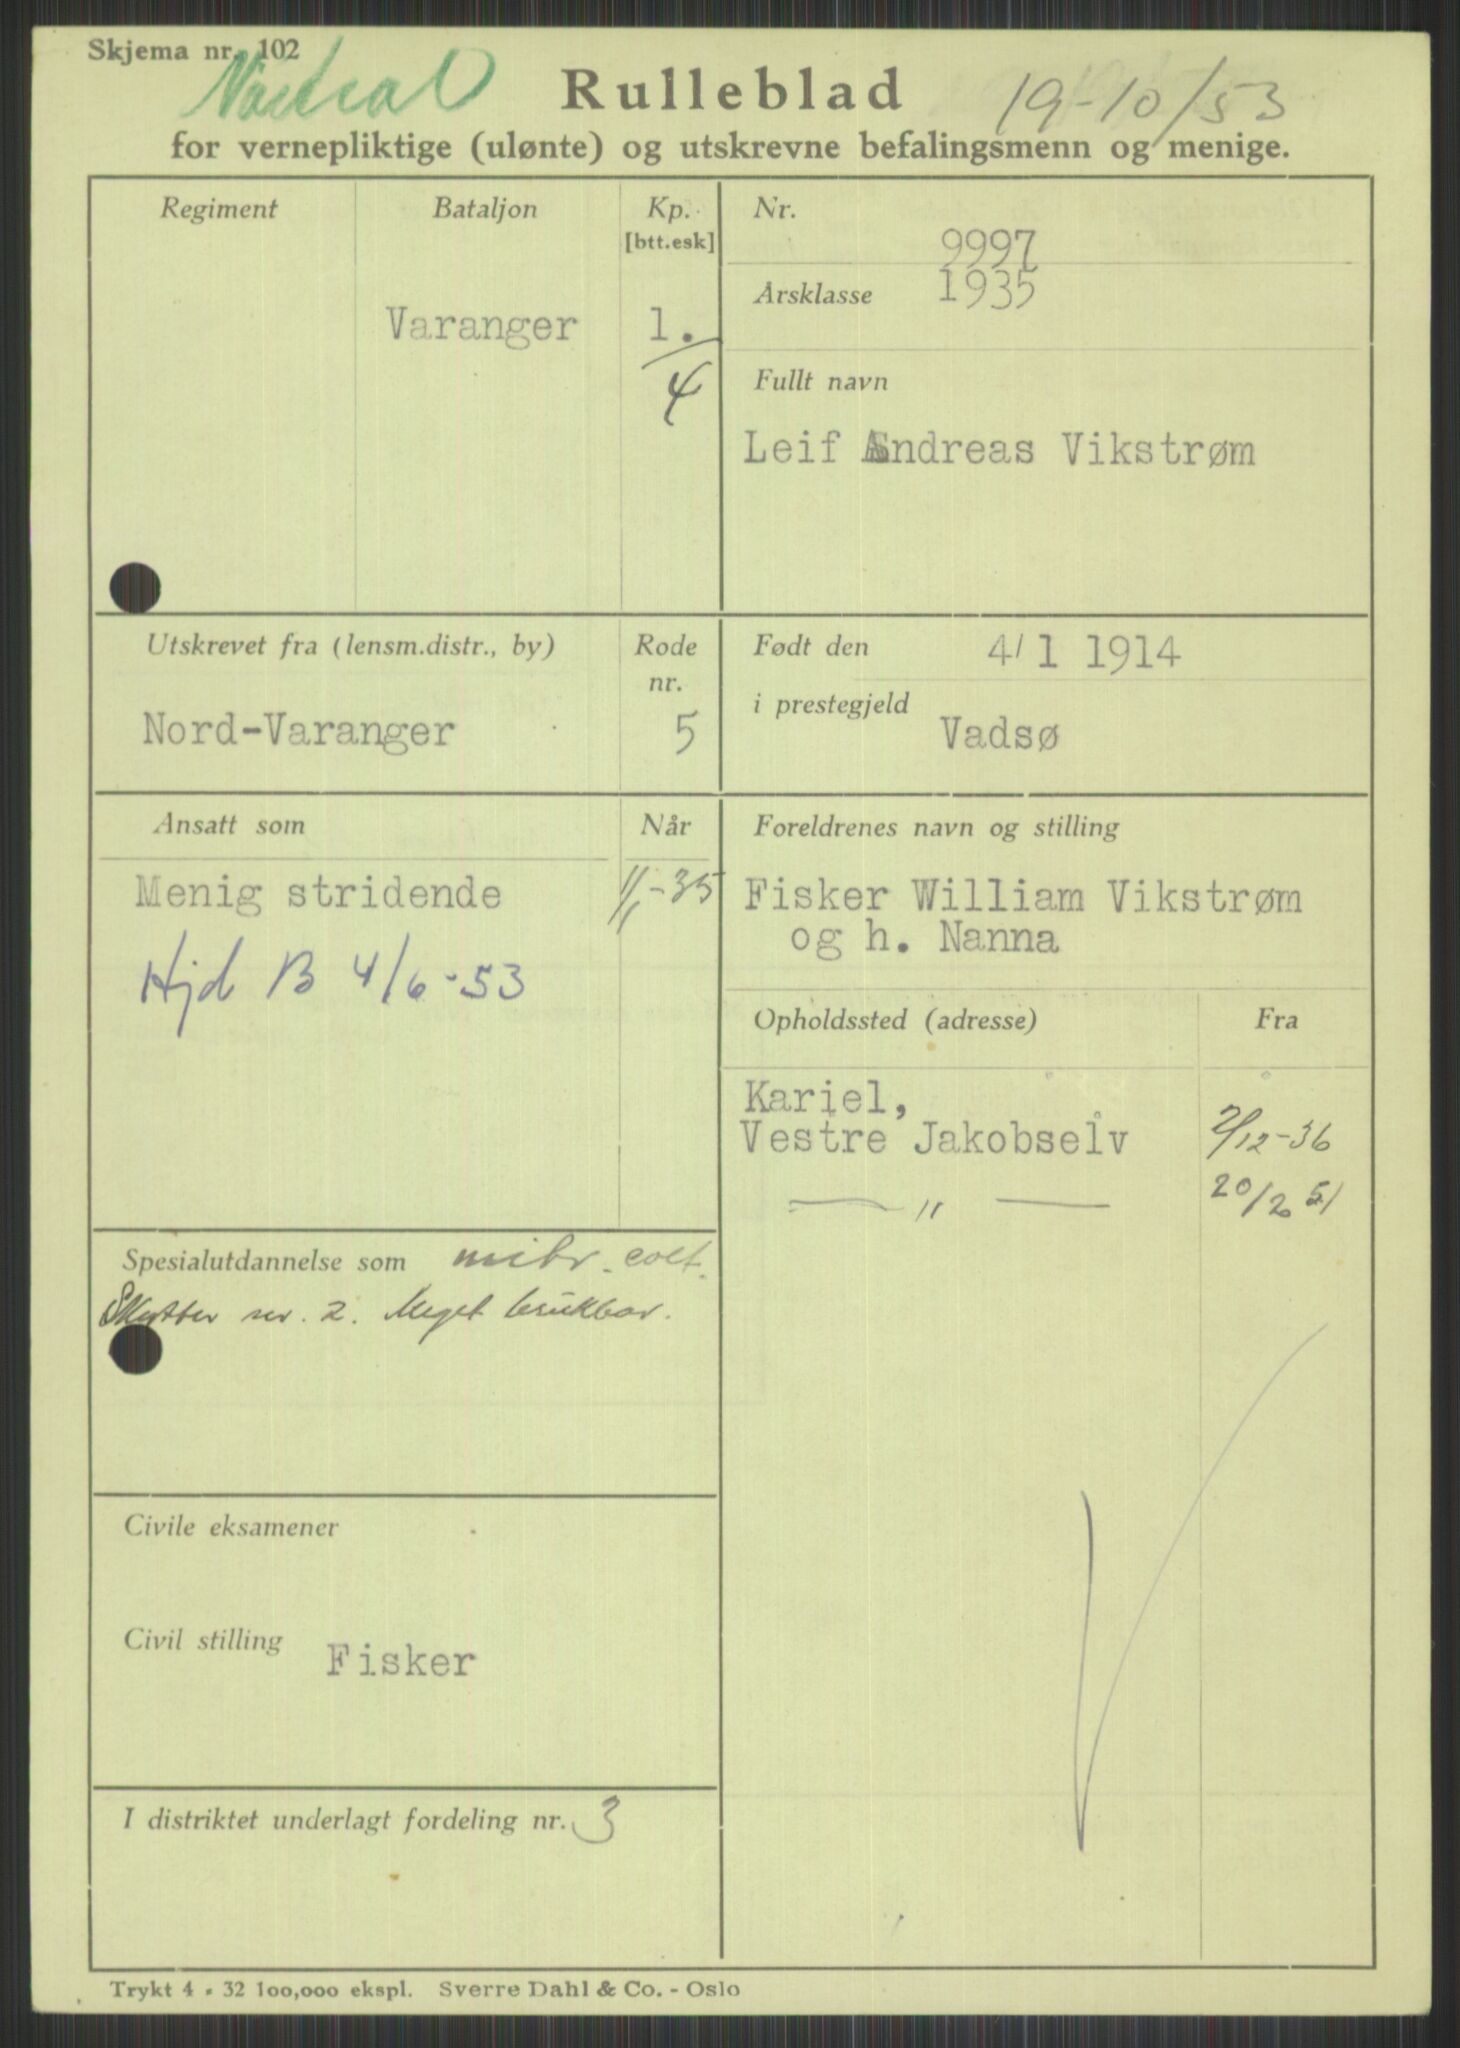 Skjema nr. 102
Rulleblad 19-10/53
for vernepliktige (ulønte) og utskrevne befalingsmenn og menige.
Regiment Bataljon Kp. [btt.esk]
Varanger 1.
4
Nr. 9997
Årsklasse 1935
Fullt navn
Leif Andreas Vikstrøm
Utskrevet fra (lensm.distr., by) Rode nr.
Nord-Varanger 5
Født den 4/1 1914
i prestegjeld Vadsø
Ansatt som Når
Menig stridende 1/1-35
Hjd B 4/6-53
Foreldrenes navn og stilling
Fisker William Vikstrøm
og h. Nanna
Opholdssted (adresse) Fra
Kariel,
Vestre Jakobselv 2/12-36
— " — 20/2 51
Spesialutdannelse som mitr. colt.
Skytter nr. 2. Meget brukbar.
Civile eksamener
Civil stilling Fisker
I distriktet underlagt fordeling nr. 3
Trykt 4 - 32 100,000 ekspl. Sverre Dahl & Co. - Oslo